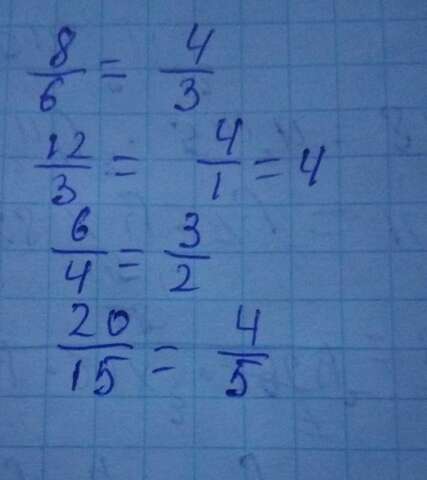 8/6 = 4/3
12/3 = 4/1 = 4
6/4 = 3/2
20/15 = 4/5